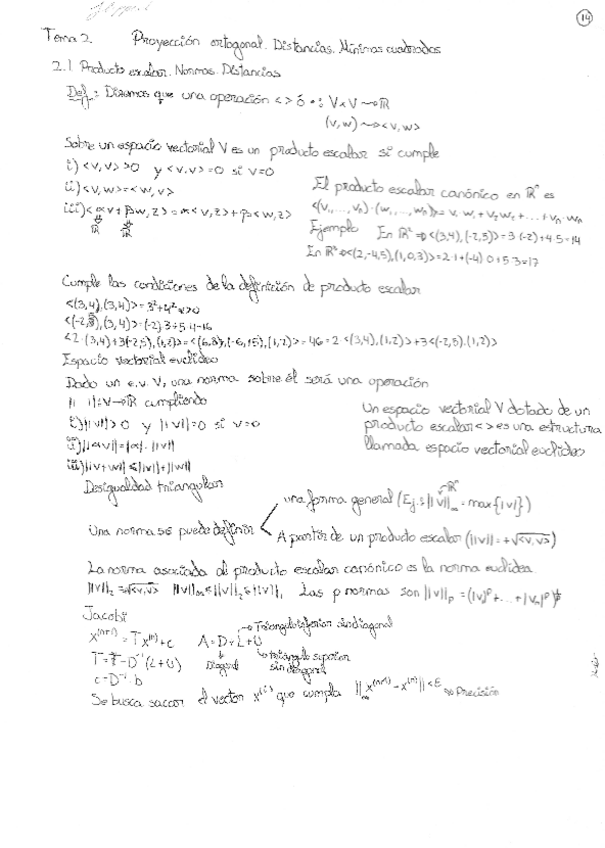 14
Tema 2. Proyección ortogonal. Distancias. Mínimos cuadrados
2.1. Producto escalar. Normas. Distancias
Def.: Diremos que una operación < > ó • : V x V → R
(v, w) → <v, w>
Sobre un espacio vectorial V es un producto escalar si cumple
i) <v, v> >0 y <v, v> = 0 si v=0
ii) <v, w> = <w, v>
iii) <αv + βw, z> = α<v, z> + β<w, z>
R R
El producto escalar canónico en Rⁿ es
<(v₁, ..., vₙ) · (w₁, ..., wₙ)> = v₁ w₁ + v₂ w₂ + ... + vₙ wₙ
Ejemplo En R² ⇒ <(3,4), (-2,5)> = 3·(-2)+4·5=14
En R³ ⇒ <(2,-4,5), (1,0,3)> = 2·1+(-4)·0+5·3=17
Cumple las condiciones de la definición de producto escalar
<(3,4), (3,4)> = 3²+4² >0
Espacio vectorial euclideo
Dado un e.v. V, una norma sobre él será una operación
|| ||: V → R cumpliendo
i) ||v|| > 0 y ||v|| = 0 si v=0
ii) ||αv|| = |α| · ||v||
iii) ||v+w|| ≤ ||v|| + ||w||
Desigualdad triangular
Un espacio vectorial V dotado de un
producto escalar < > es una estructura
llamada espacio vectorial euclideo
Una norma se puede definir
una forma general (Ej.: ||v||∞ = max{|v|})
Rⁿ
A partir de un producto escalar (||v|| = +√<v,v>)
La norma asociada al producto escalar canónico es la norma euclidea.
||v||₂ = √<v,v> ||v||∞ ≤ ||v||₂ ≤ ||v||₁ Las p normas son ||v||p = (|v₁|ᵖ + ... + |vₙ|ᵖ)
Jacobi
x⁽ⁿ⁺¹⁾ = T x⁽ⁿ⁾ + c A = D + L + U → Triangular inferior sin diagonal
T = -D⁻¹(L+U) Diagonal triangular superior
sin diagonal
c = D⁻¹ · b
Se busca sacar el vector x⁽ⁱ⁾ que cumpla ||x⁽ⁿ⁺¹⁾ - x⁽ⁿ⁾|| < E Precisión